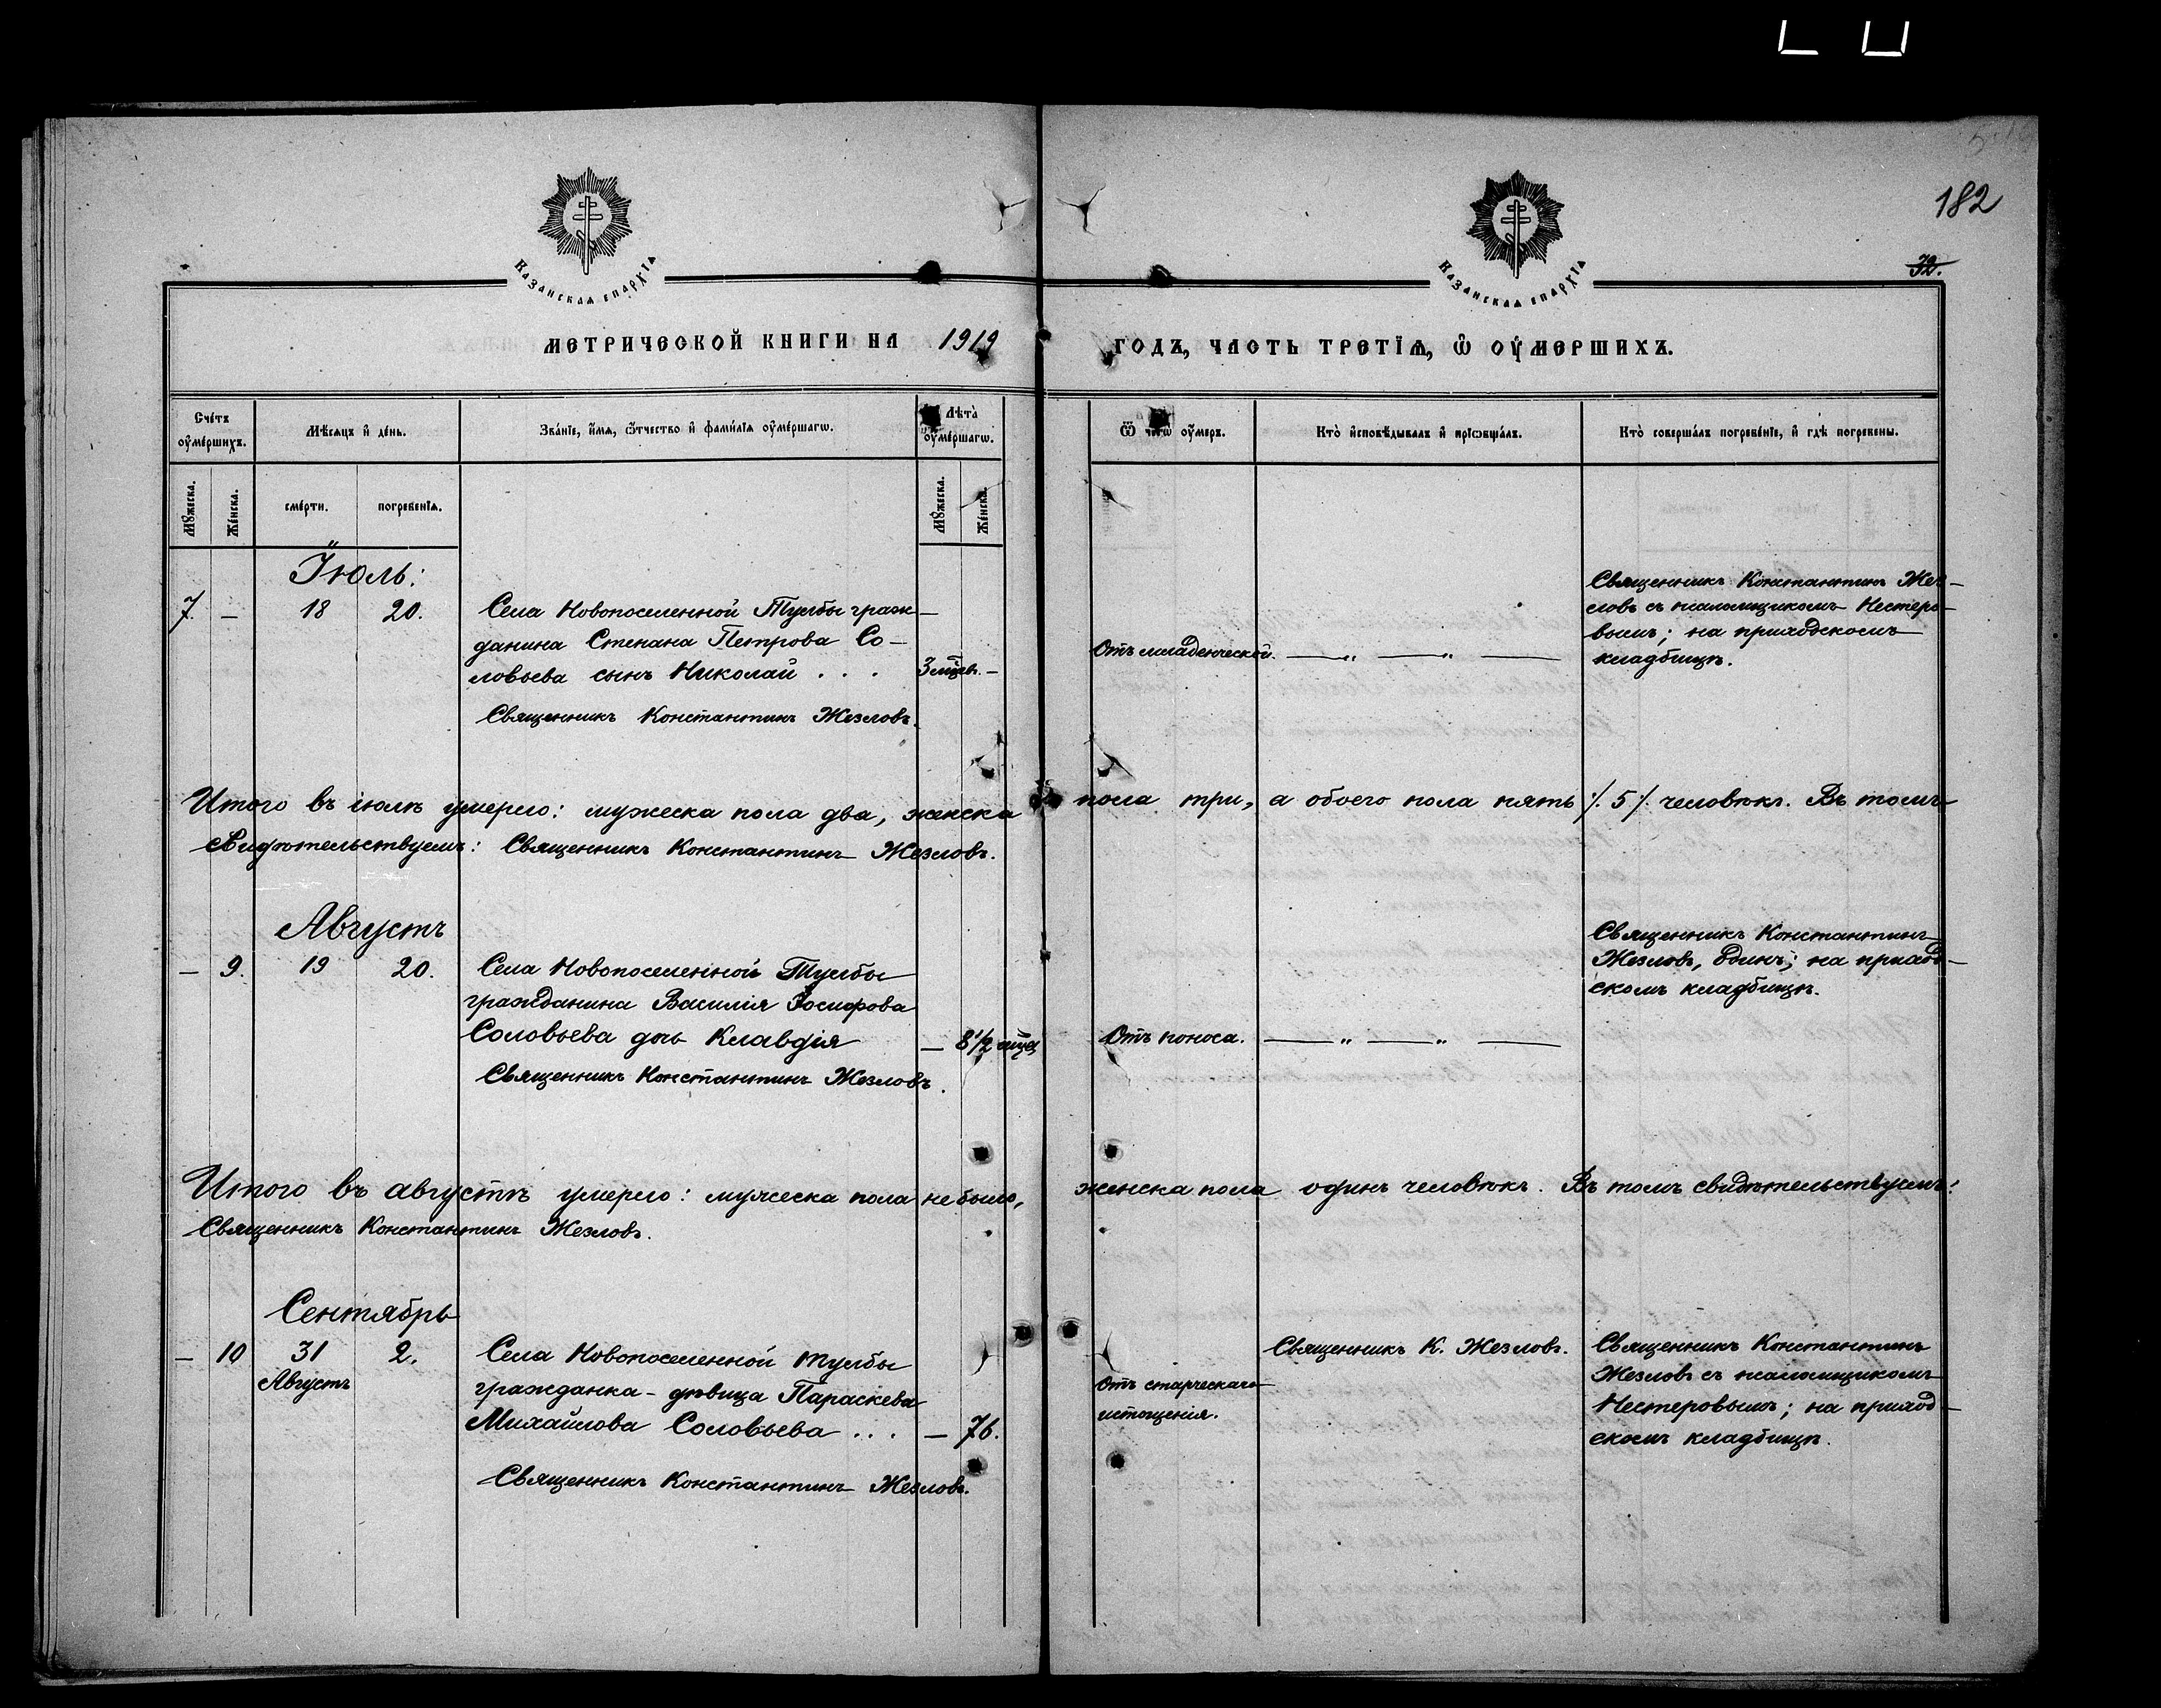 182
32.
КАЗАНСКАѦ ЕПАРХІѦ
КАЗАНСКАѦ ЕПАРХІѦ
МЕТРИЧЕСКОЙ КНИГИ НА 1919 ГОДЪ, ЧАСТЬ ТРЕТІѦ, Ѡ ОУМЕРШИХЪ.
Счетъ оумершихъ.
Мѣсяцъ и день.
Званіе, имя, отчество и фамилія оумершагѡ.
Лѣта оумершагѡ.
Ѿ чегѡ оумеръ.
Кто исповѣдывалъ и пріѡбщалъ.
Кто совершалъ погребеніе, и гдѣ погребены.
Мꙋжеска.
Женска.
смерти.
погребенія.
Мꙋжеска.
Женска.
Іюль:
7. — 18 20.
Села Новопоселенной Тумбы граж
данина Степана Петрова Со-
ловьева сынъ Николай . . .
3 мѣсяц. —
Священникъ Константинъ Жезловъ.
Отъ младенческой.
Священникъ Константинъ Жез-
словъ съ псаломщикомъ Нестеро-
вымъ; на приходскомъ
кладбищѣ.
Итого въ іюлѣ умерло: мужеска пола два, женска пола три, а обоего пола пять /. 5 /. человѣкъ. Въ томъ
свидѣтельствуемъ: Священникъ Константинъ Жезловъ.
Августъ
— 9. 19 20.
Села Новопоселенной Тумбы
гражданина Василія Іосифова
Соловьева дочь Клавдія
— 8 1/2 мѣсяц
Священникъ Константинъ Жезловъ.
Отъ поноса.
Священникъ Константинъ
Жезловъ, одинъ; на приход-
скомъ кладбищѣ.
Итого въ августѣ умерло: мужеска пола не было, женска пола одинъ человѣкъ. Въ томъ свидѣтельствуемъ:
Священникъ Константинъ Жезловъ.
Сентябрь
— 10 31 2.
Августъ
Села Новопоселенной Тумбы
гражданка - дѣвица Параскева
Михайлова Соловьева . . .
— 76.
Священникъ Константинъ Жезловъ.
Отъ старческаго
истощенія.
Священникъ К. Жезловъ.
Священникъ Константинъ
Жезловъ съ псаломщикомъ
Нестеровымъ; на приход-
скомъ кладбищѣ.